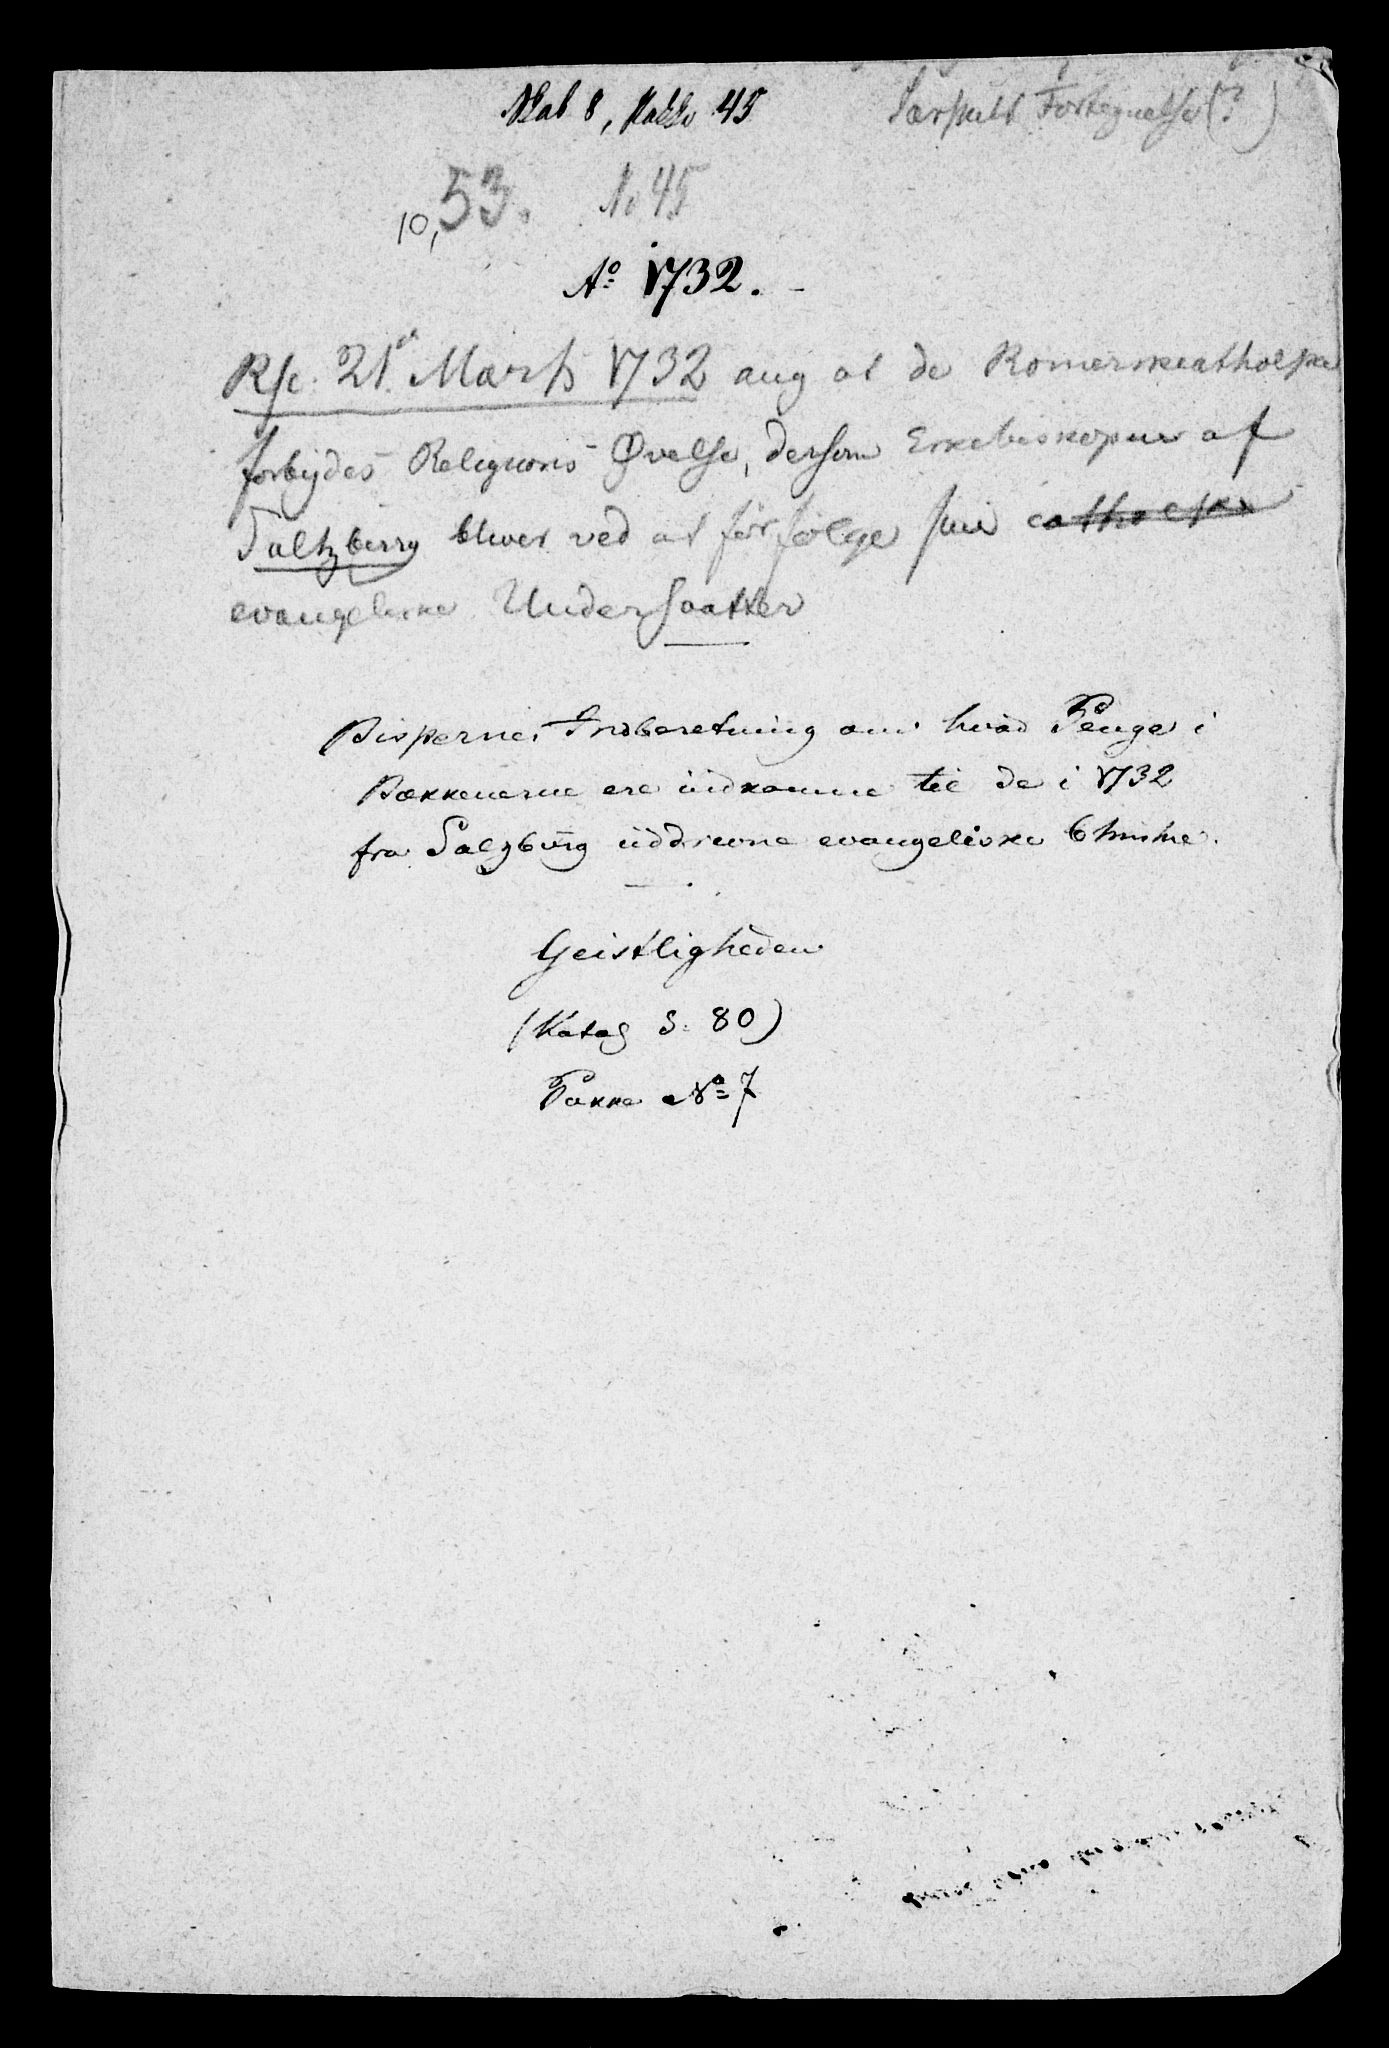 Skab 8, Pakke 45
Særskilt Fortegnelse (?)
10, 53. No 45
Aº 1732.
Rsc. 21 Marts 1732 ang at de Romerskcatholske
forbydes Religions Øvelse, dersom Erkebiskopen af
Saltzburg bliver ved at forfølge sine catholske
evangeliske Undersaatter
Bispernes Indberetning om hvad Penge i
Bækkenerne ere indkomne til de i 1732
fra Salzburg uddrevne evangeliske Christne.
Geistligheden
(Katal S. 80)
Pakke Nº 7